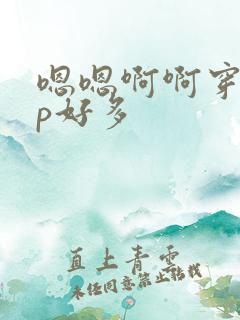 嗯嗯啊啊穿
p好多
直上青云
未经同意禁止转载